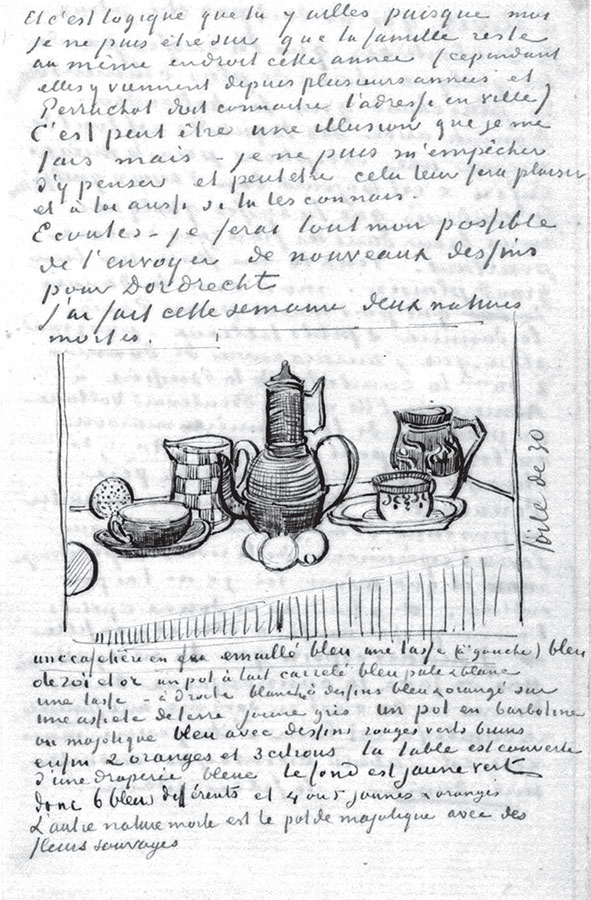 Et c'est logique que tu y ailles puisque moi
je ne puis être sur que la famille reste
au même endroit cette année (cependant
elles y viennent depuis plusieurs années et
Perruchot doit connaitre l'adresse en ville)
C'est peut être une illusion que je me
fais mais – je ne puis m'empêcher
d'y penser et peutetre cela leur fera plaisir
et à toi aussi si tu les connais.
Ecoutes – je ferai tout mon possible
de t'envoyer de nouveaux dessins
pour Dordrecht
J'ai fait cette semaine deux natures
mortes.
toile de 30
une cafetière en fer emaillé bleu une tasse (à gauche) bleu
de roi et or un pot à lait carrelé bleu pale & blanc
une tasse – à droite blanche à dessins bleu & orangé sur
une assiete de terre jaune gris un pot en barbotine
ou majolique bleu avec dessins rouges verts bruns
enfin 2 oranges et 3 citrons la table est couverte
d'une draperie bleue le fond est jaune vert
donc 6 bleu différents et 4 ou 5 jaunes & orangés
L'autre nature morte est le pot de majolique avec des
fleurs sauvages